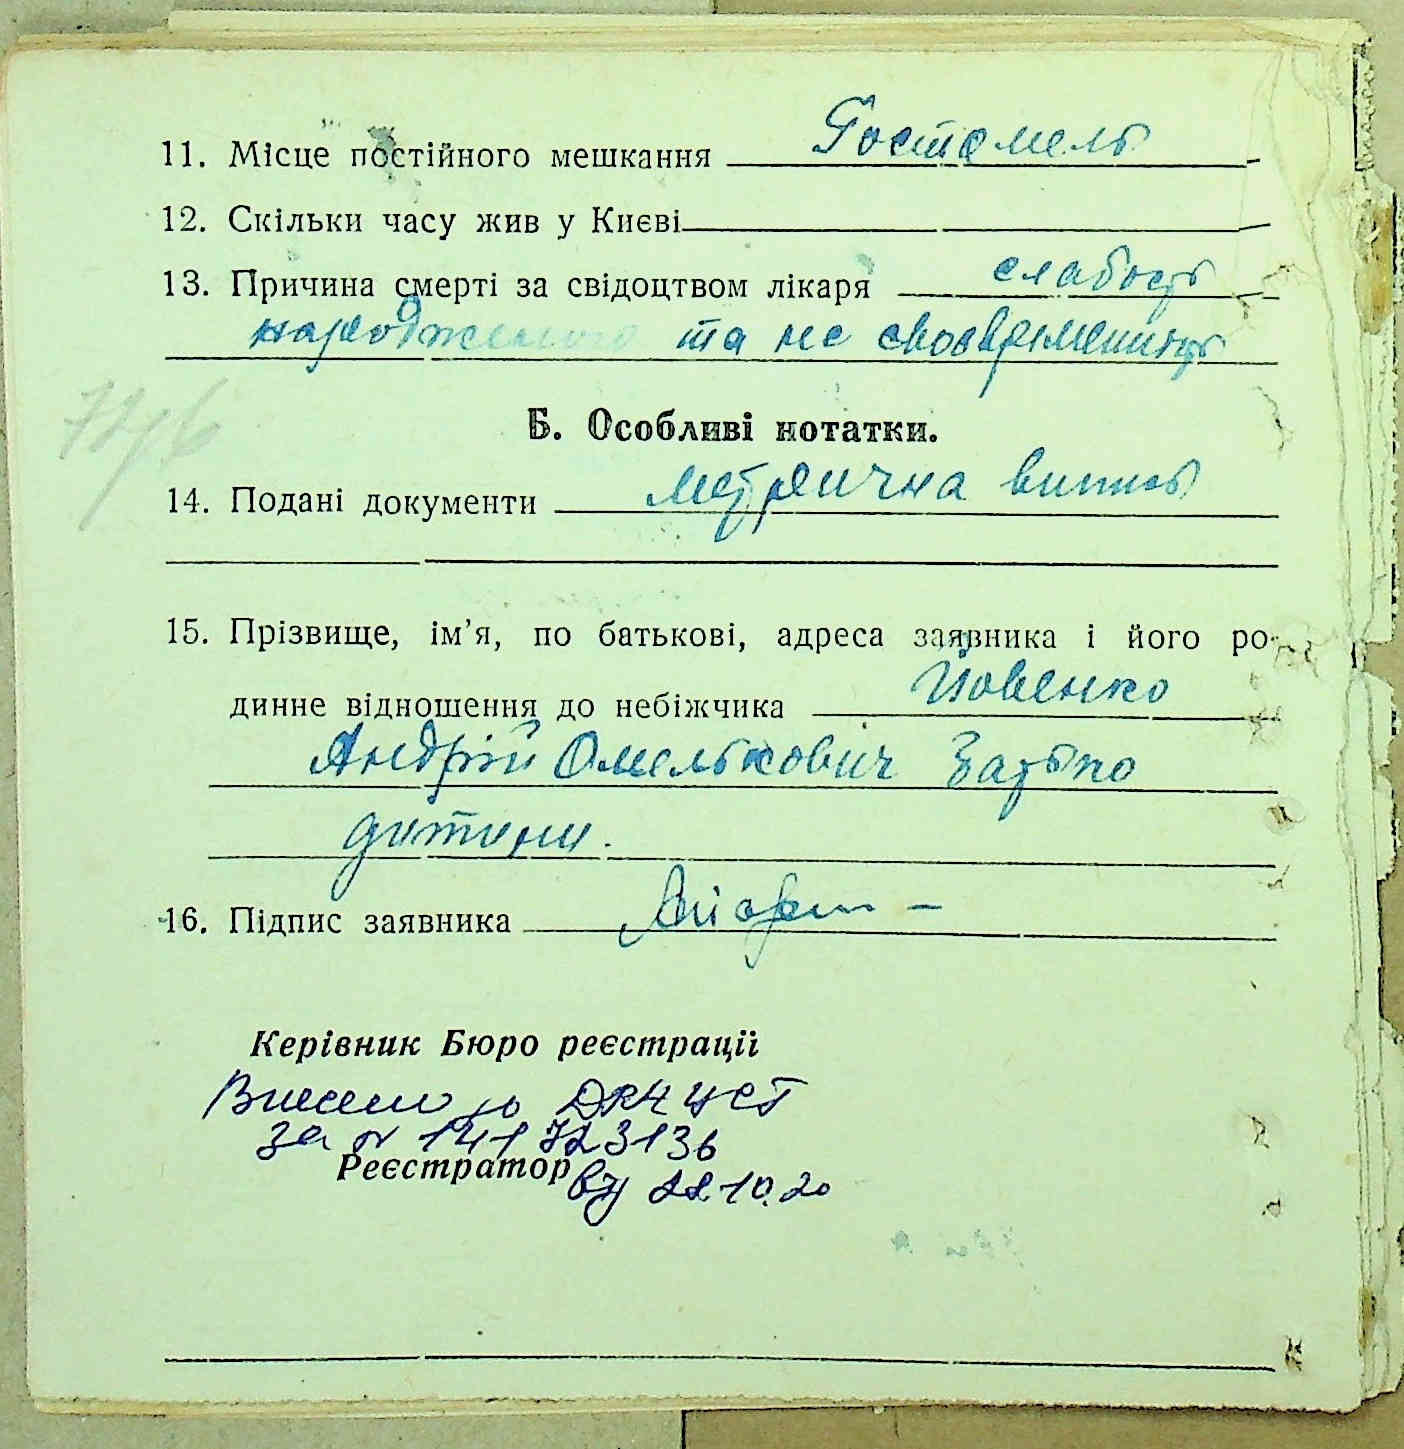 11. Місце постійного мешкання Гостомель
12. Скільки часу жив у Києві
13. Причина смерті за свідоцтвом лікаря слабость
народженого та не своєвременность
Б. Особливі нотатки.
14. Подані документи метрична випись
15. Прізвище, ім’я, по батькові, адреса заявника і його ро-
динне відношення до небіжчика Йовенко
Андрій Омелькович Батько
дитини.
16. Підпис заявника
Керівник Бюро реєстрації
Внесено до ДРАЦСГ
за № 141723136
Реєстратор 22.10.20